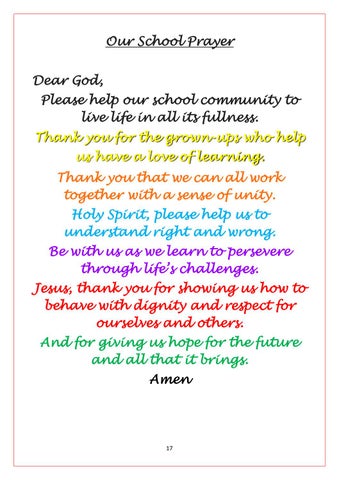 Our School Prayer
Dear God,
Please help our school community to
live life in all its fullness.
Thank you for the grown-ups who help
us have a love of learning.
Thank you that we can all work
together with a sense of unity.
Holy Spirit, please help us to
understand right and wrong.
Be with us as we learn to persevere
through life's challenges.
Jesus, thank you for showing us how to
behave with dignity and respect for
ourselves and others.
And for giving us hope for the future
and all that it brings.
Amen
17